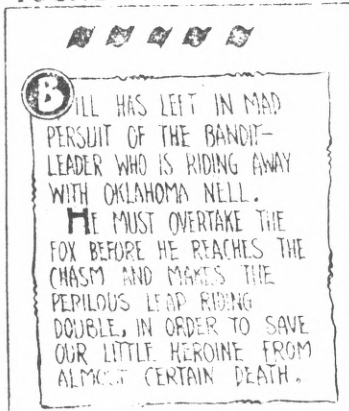 BILL HAS LEFT IN MAD
PERSUIT OF THE BANDIT-
LEADER WHO IS RIDING AWAY
WITH OKLAHOMA NELL.
HE MUST OVERTAKE THE
FOX BEFORE HE REACHES THE
CHASM AND MAKES THE
PERILOUS LEAP RIDING
DOUBLE, IN ORDER TO SAVE
OUR LITTLE HEROINE FROM
ALMOST CERTAIN DEATH.